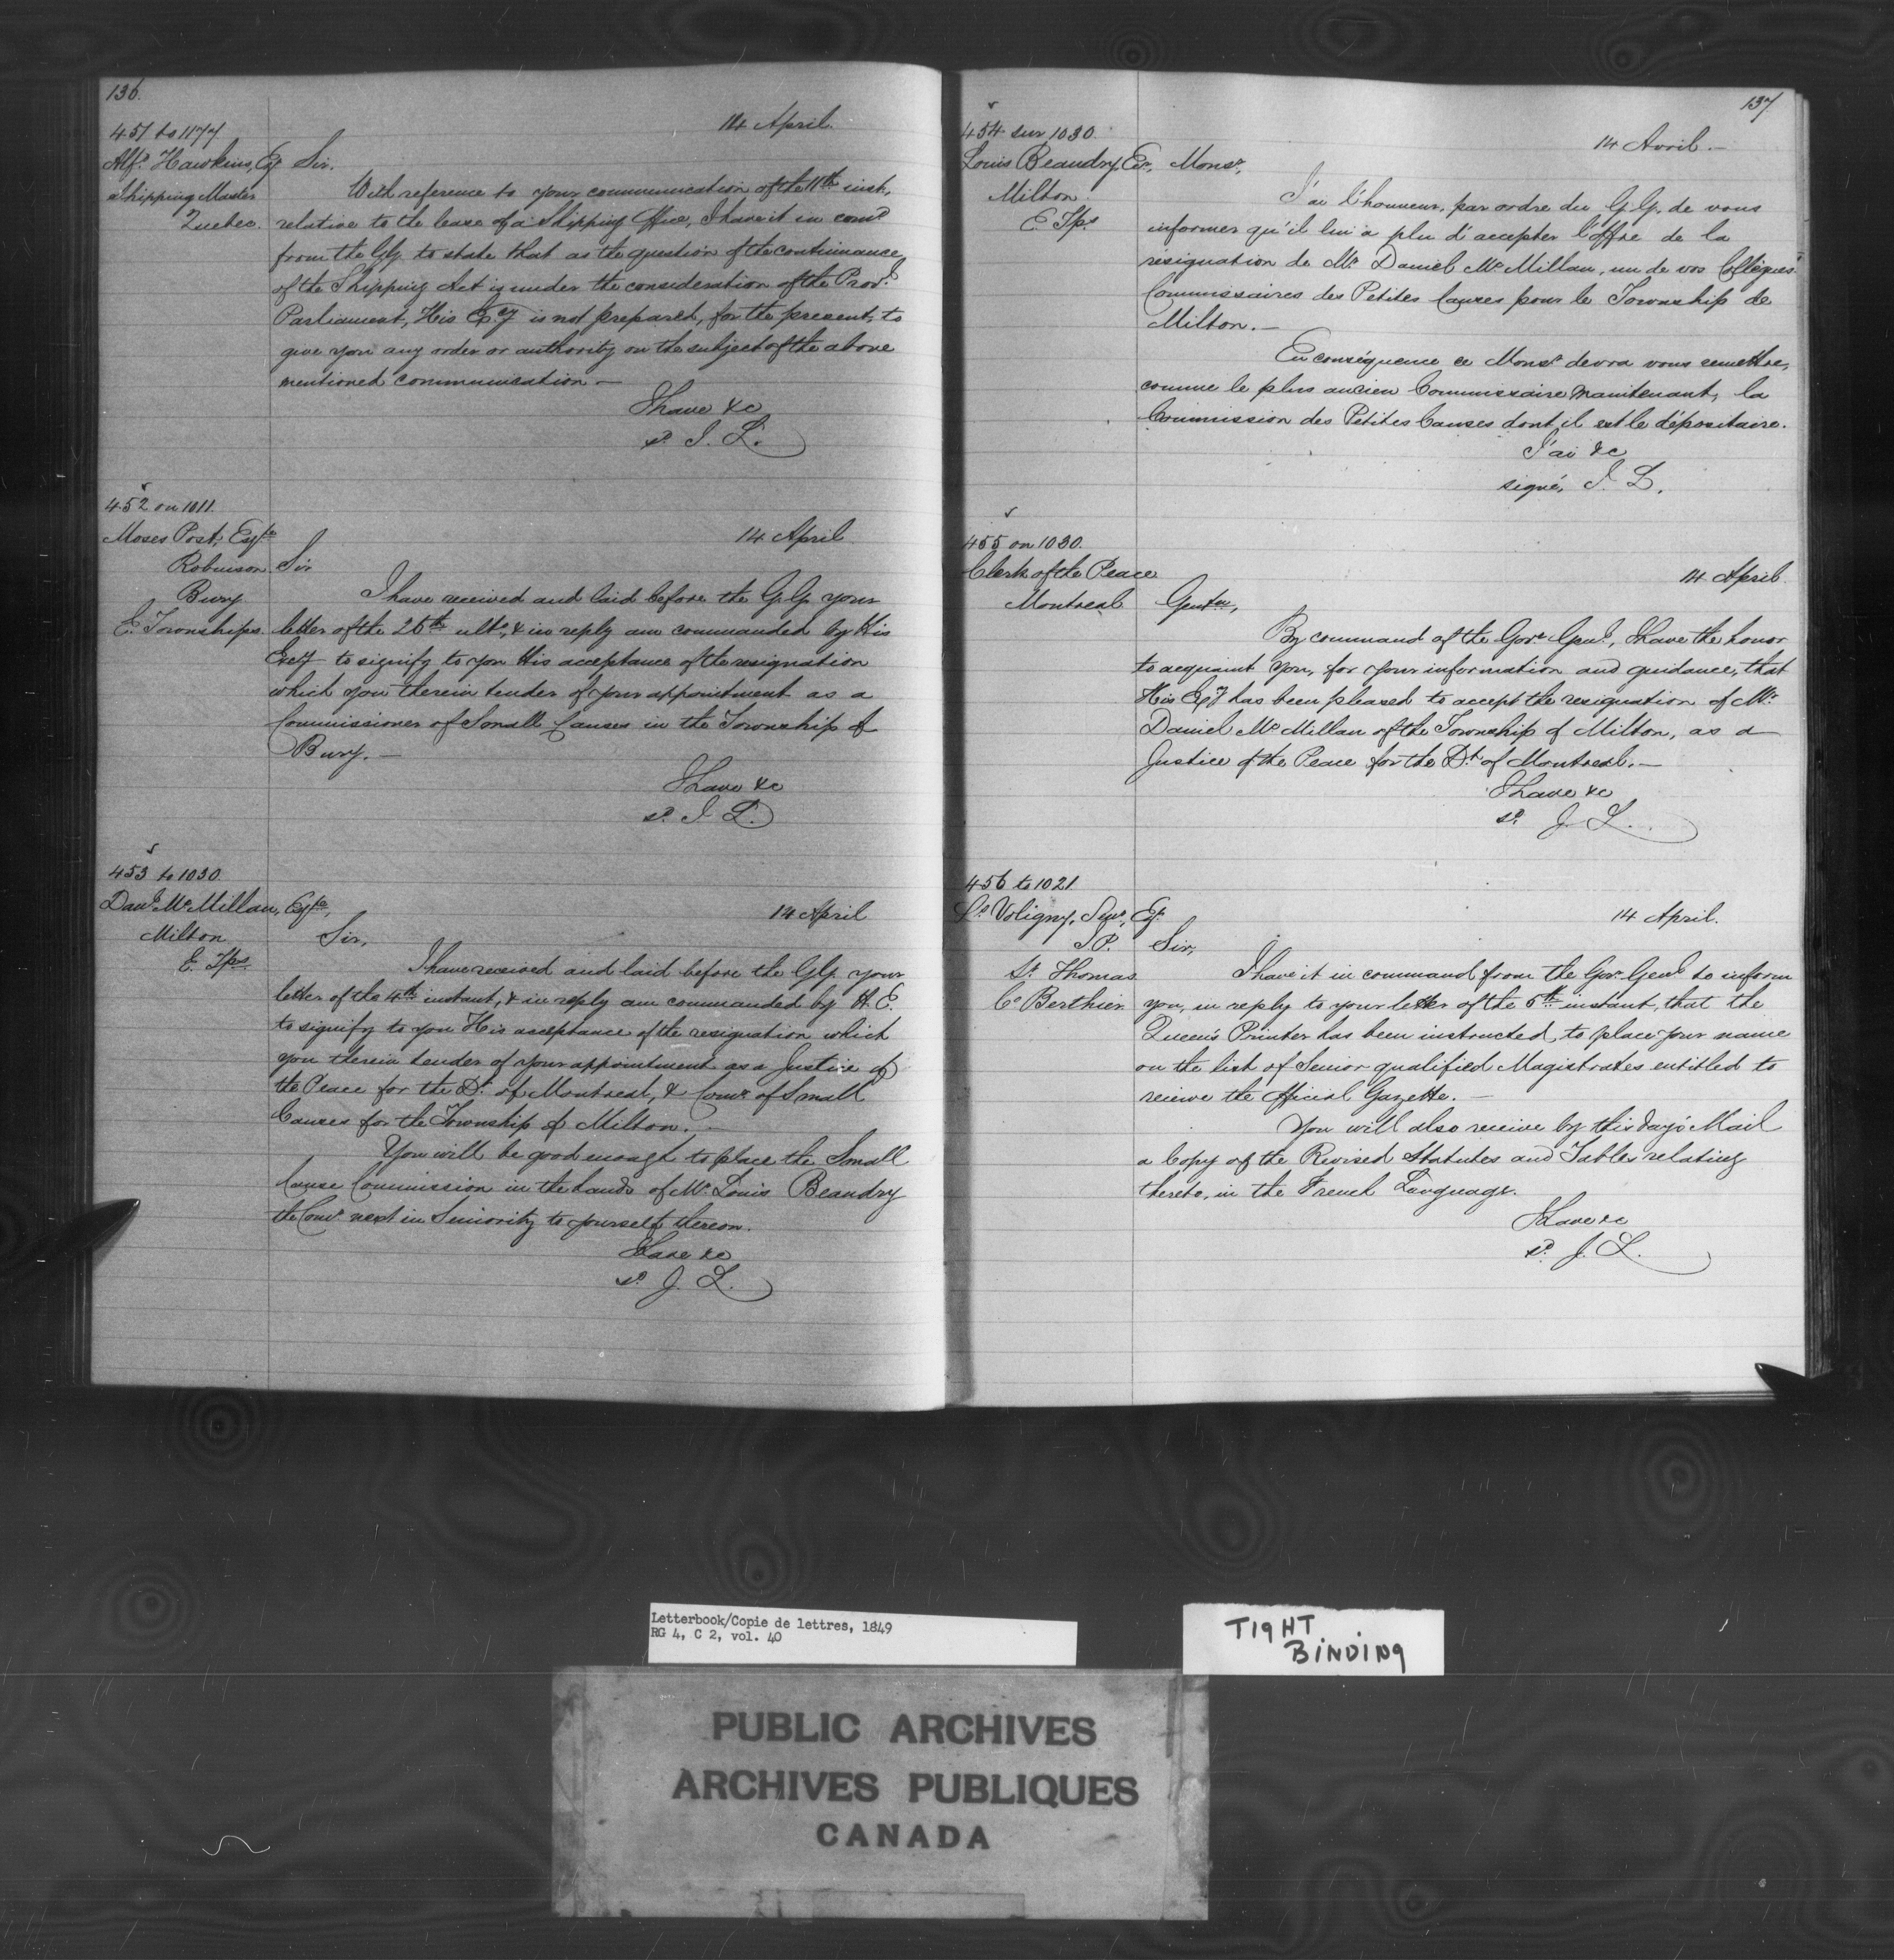 136.
451 to 1177
14 April.
Alfd. Hawkins, Esqr Sir.
Shipping Master
Quebec.
With reference to your communication of the 11th inst,
relative to the lease of a Shipping Office, I have it in comd
from the G.G. to state that as the question of the continuance
of the Shipping Act is under the consideration of the Provl.
Parliament, His Exy is not prepared, for the present, to
give you any order or authority on the subject of the above
mentioned communication —
I have &c
sd. J. L.
452 on 1011.
Moses Post, Esqre
14 April
Robinson Sir
Bury
E. Townships.
I have received and laid before the G.G. your
letter of the 26th ulto, & in reply am commanded by His
Excy to signify to you His acceptance of the resignation
which you therein tender of your appointment as a
Commissioner of Small Causes in the Township of
Bury. —
I have &c
sd. J. L.
453 to 1030.
Danl. McMillan, Esqre,
14 April
Milton
Sir,
E. Tps.
I have received and laid before the G.G. your
letter of the 4th instant, & in reply am commanded by H. E.
to signify to you His acceptance of the resignation which
you therein tender of your appointment as a Justice of
the Peace for the Dt. of Montreal, & Comr. of Small
Causes for the Township of Milton. —
You will be good enough to place the Small
Cause Commission in the hands of Mr. Louis Beaudry
the Comr next in Seniority to yourself thereon.
I have &c
sd. J. L.
137
454 sur 1030.
14 Avril. —
Louis Beaudry, Ecr, Monsr,
Milton
E. Tps.
J'ai l'honneur, par ordre du G.G. de vous
informer qu'il lui a plu d'accepter l'offre de la
résignation de Mr. Daniel McMillan, un de vos Collègues
Commissaires des Petites Causes pour le Township de
Milton. —
En conséquence ce Monsr. devra vous remettre,
comme le plus ancien Commissaire maintenant, la
Commission des Petites Causes dont il est le dépositaire.
J'ai &c
signé, J. L.
455 on 1030.
Clerk of the Peace
14 April
Montreal
Gentn,
By command of the Govr. Genl., I have the honor
to acquaint you, for your information and guidance, that
His Exy has been pleased to accept the resignation of Mr.
Daniel McMillan of the Township of Milton, as a
Justice of the Peace for the Dt. of Montreal. —
I have &c
sd. J. L.
456 to 1021
Ls. Voligny, Senr, Esqr
14 April.
J.P. Sir,
St. Thomas
Co. Berthier
I have it in command from the Govr. Genl to inform
you, in reply to your letter of the 5th instant, that the
Queen's Printer has been instructed, to place your name
on the list of Senior qualified Magistrates entitled to
receive the Official Gazette. —
You will also receive by this day's Mail
a Copy of the Revised Statutes and Tables relating
thereto, in the French Language.
I have &c
sd. J. L.
Letterbook/Copie de lettres, 1849
RG 4, C 2, vol. 40
TIGHT
BINDING
PUBLIC ARCHIVES
ARCHIVES PUBLIQUES
CANADA